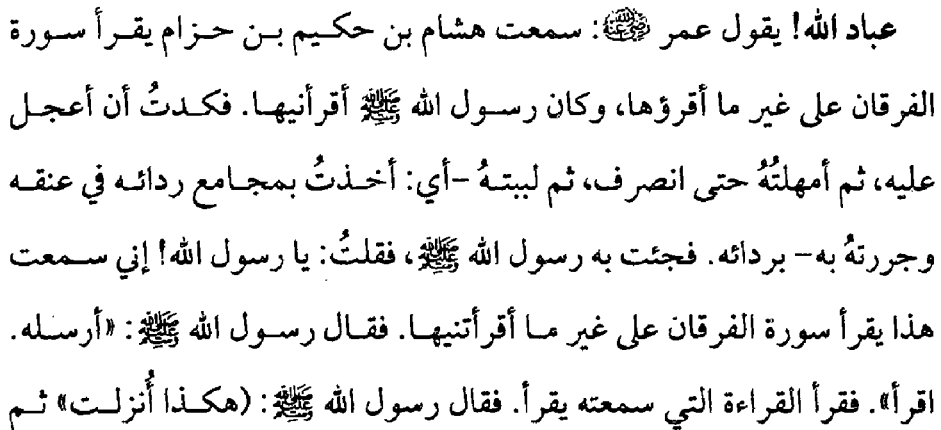 عباد الله! يقول عمر رضي الله عنه: سمعت هشام بن حكيم بن حزام يقرأ سورة
الفرقان على غير ما أقرؤها، وكان رسول الله ﷺ أقرأنيها. فكدتُ أن أعجل
عليه، ثم أمهلتُهُ حتى انصرف، ثم لببتهُ -أي: أخذتُ بمجامع ردائه في عنقه
وجررتهُ به- بردائه. فجئت به رسول الله ﷺ، فقلتُ: يا رسول الله! إني سمعت
هذا يقرأ سورة الفرقان على غير ما أقرأتنيها. فقال رسول الله ﷺ: «أرسله.
اقرأ». فقرأ القراءة التي سمعته يقرأ. فقال رسول الله ﷺ: (هكذا أُنزلت» ثم